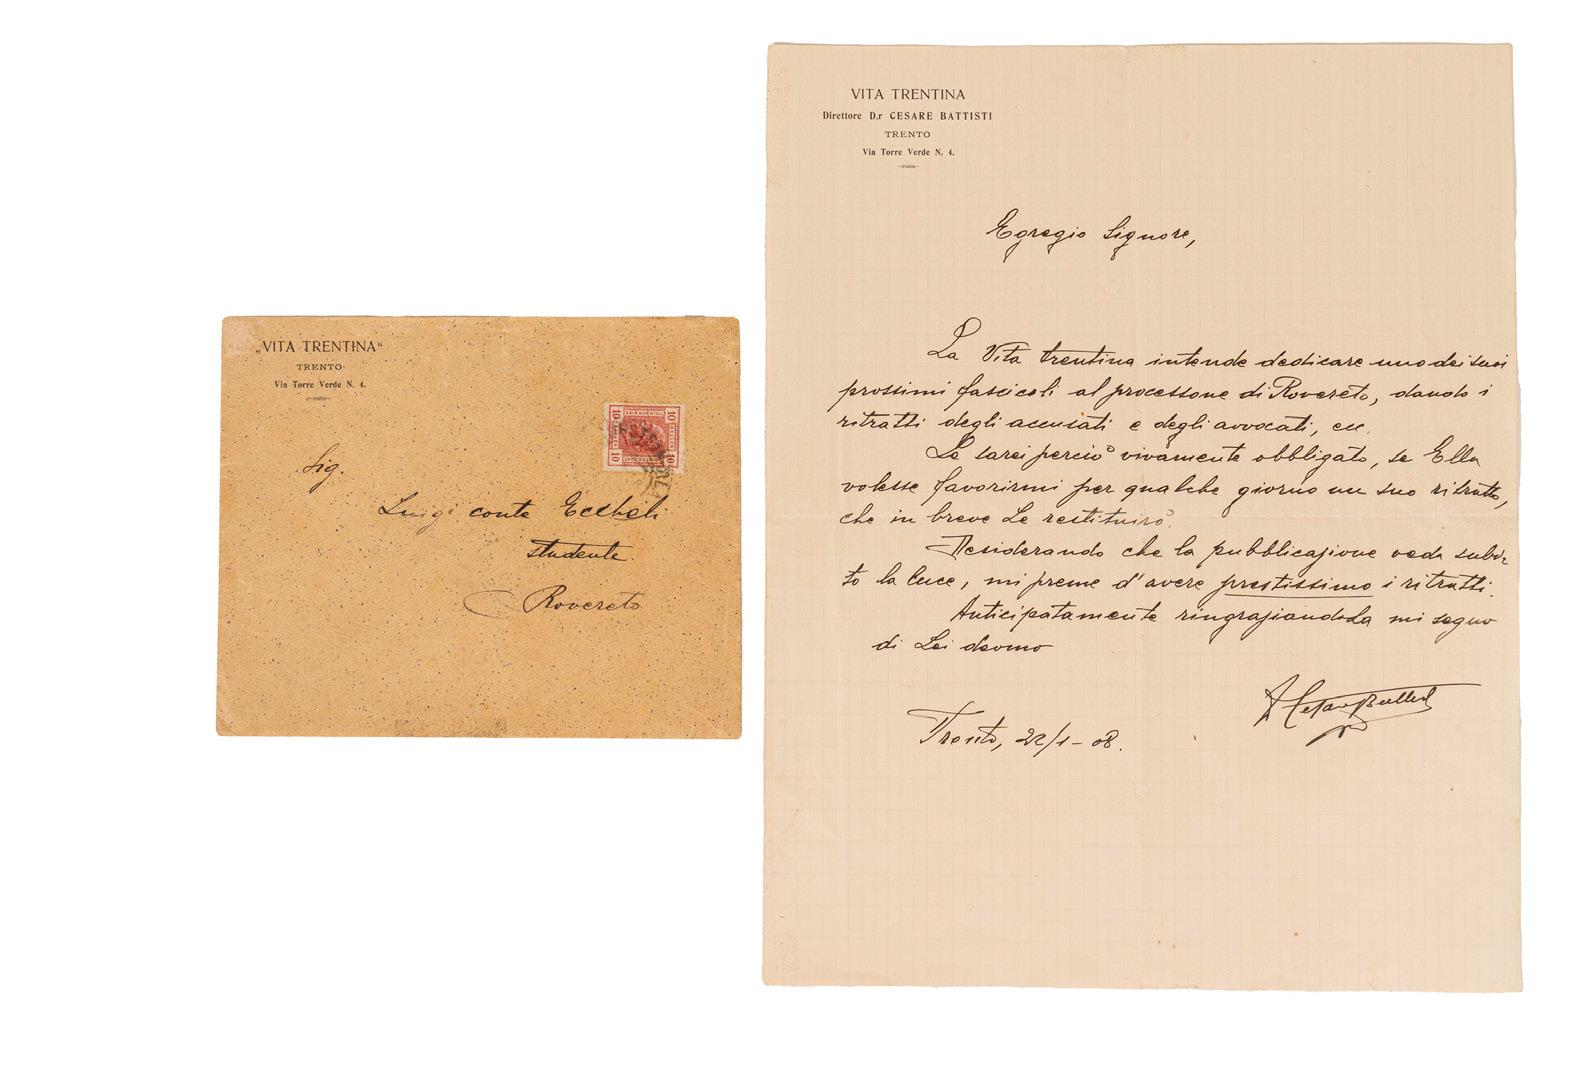 „VITA TRENTINA“
TRENTO
Via Torre Verde N. 4.
10 10
10 10
Sig.
Luigi conte Eccheli
studente
Rovereto
VITA TRENTINA
Direttore D.r CESARE BATTISTI
TRENTO
Via Torre Verde N. 4.
Egregio Signore,
La Vita trentina intende dedicare uno dei suoi
prossimi fascicoli al processone di Rovereto, dando i
ritratti degli accusati e degli avvocati, ecc.
Le sarei perciò vivamente obbligato, se Ella
volesse favorirmi per qualche giorno un suo ritratto,
che in breve Le restituirò.
Desiderando che la pubblicazione veda subi-
to la luce, mi preme d'avere prestissimo i ritratti.
Anticipatamente ringraziandoLa mi segno
di Lei devmo
Dr Cesare Battisti
Trento, 22/1-08.